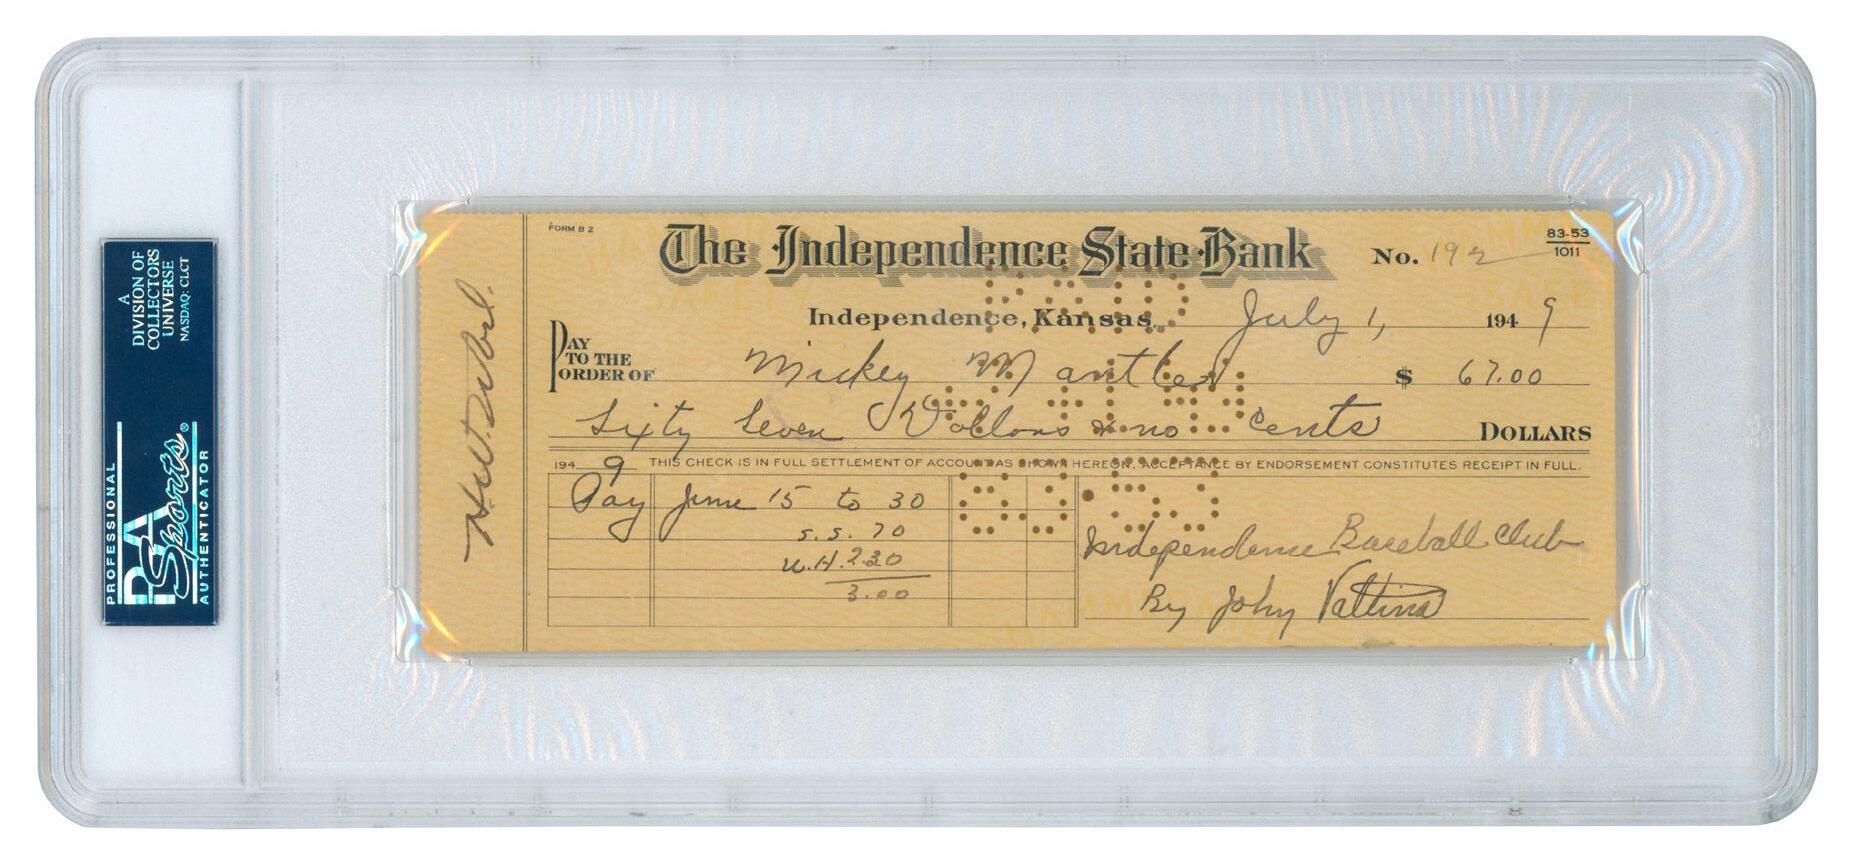 A
DIVISION OF
COLLECTORS
UNIVERSE
NASDAQ: CLCT
PROFESSIONAL
PSA
Sports®
AUTHENTICATOR
FORM B 2
The Independence State Bank
No. 192
83-53
1011
Independence, Kansas, July 1, 1949
PAY
TO THE
ORDER OF Mickey Mantle $ 67.00
Sixty Seven Dollars & no Cents DOLLARS
1949 THIS CHECK IS IN FULL SETTLEMENT OF ACCOUNT AS SHOWN HEREON. ACCEPTANCE BY ENDORSEMENT CONSTITUTES RECEIPT IN FULL.
Pay June 15 to 30
S.S. 70
W.H. 2.30
3.00
Independence Baseball Club
By John Vattina
PAID
83-53